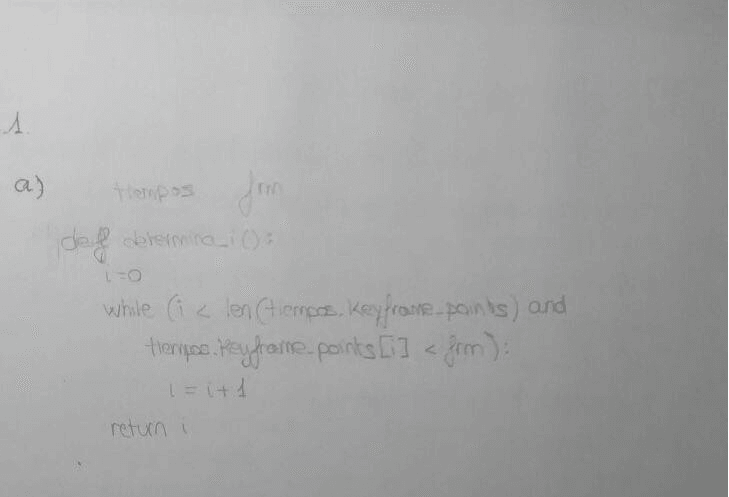 1.
a) tiempos frm
def determina_i():
i=0
while (i < len(tiempos.keyframe_points) and
tiempos.keyframe_points[i] < frm):
i = i+1
return i